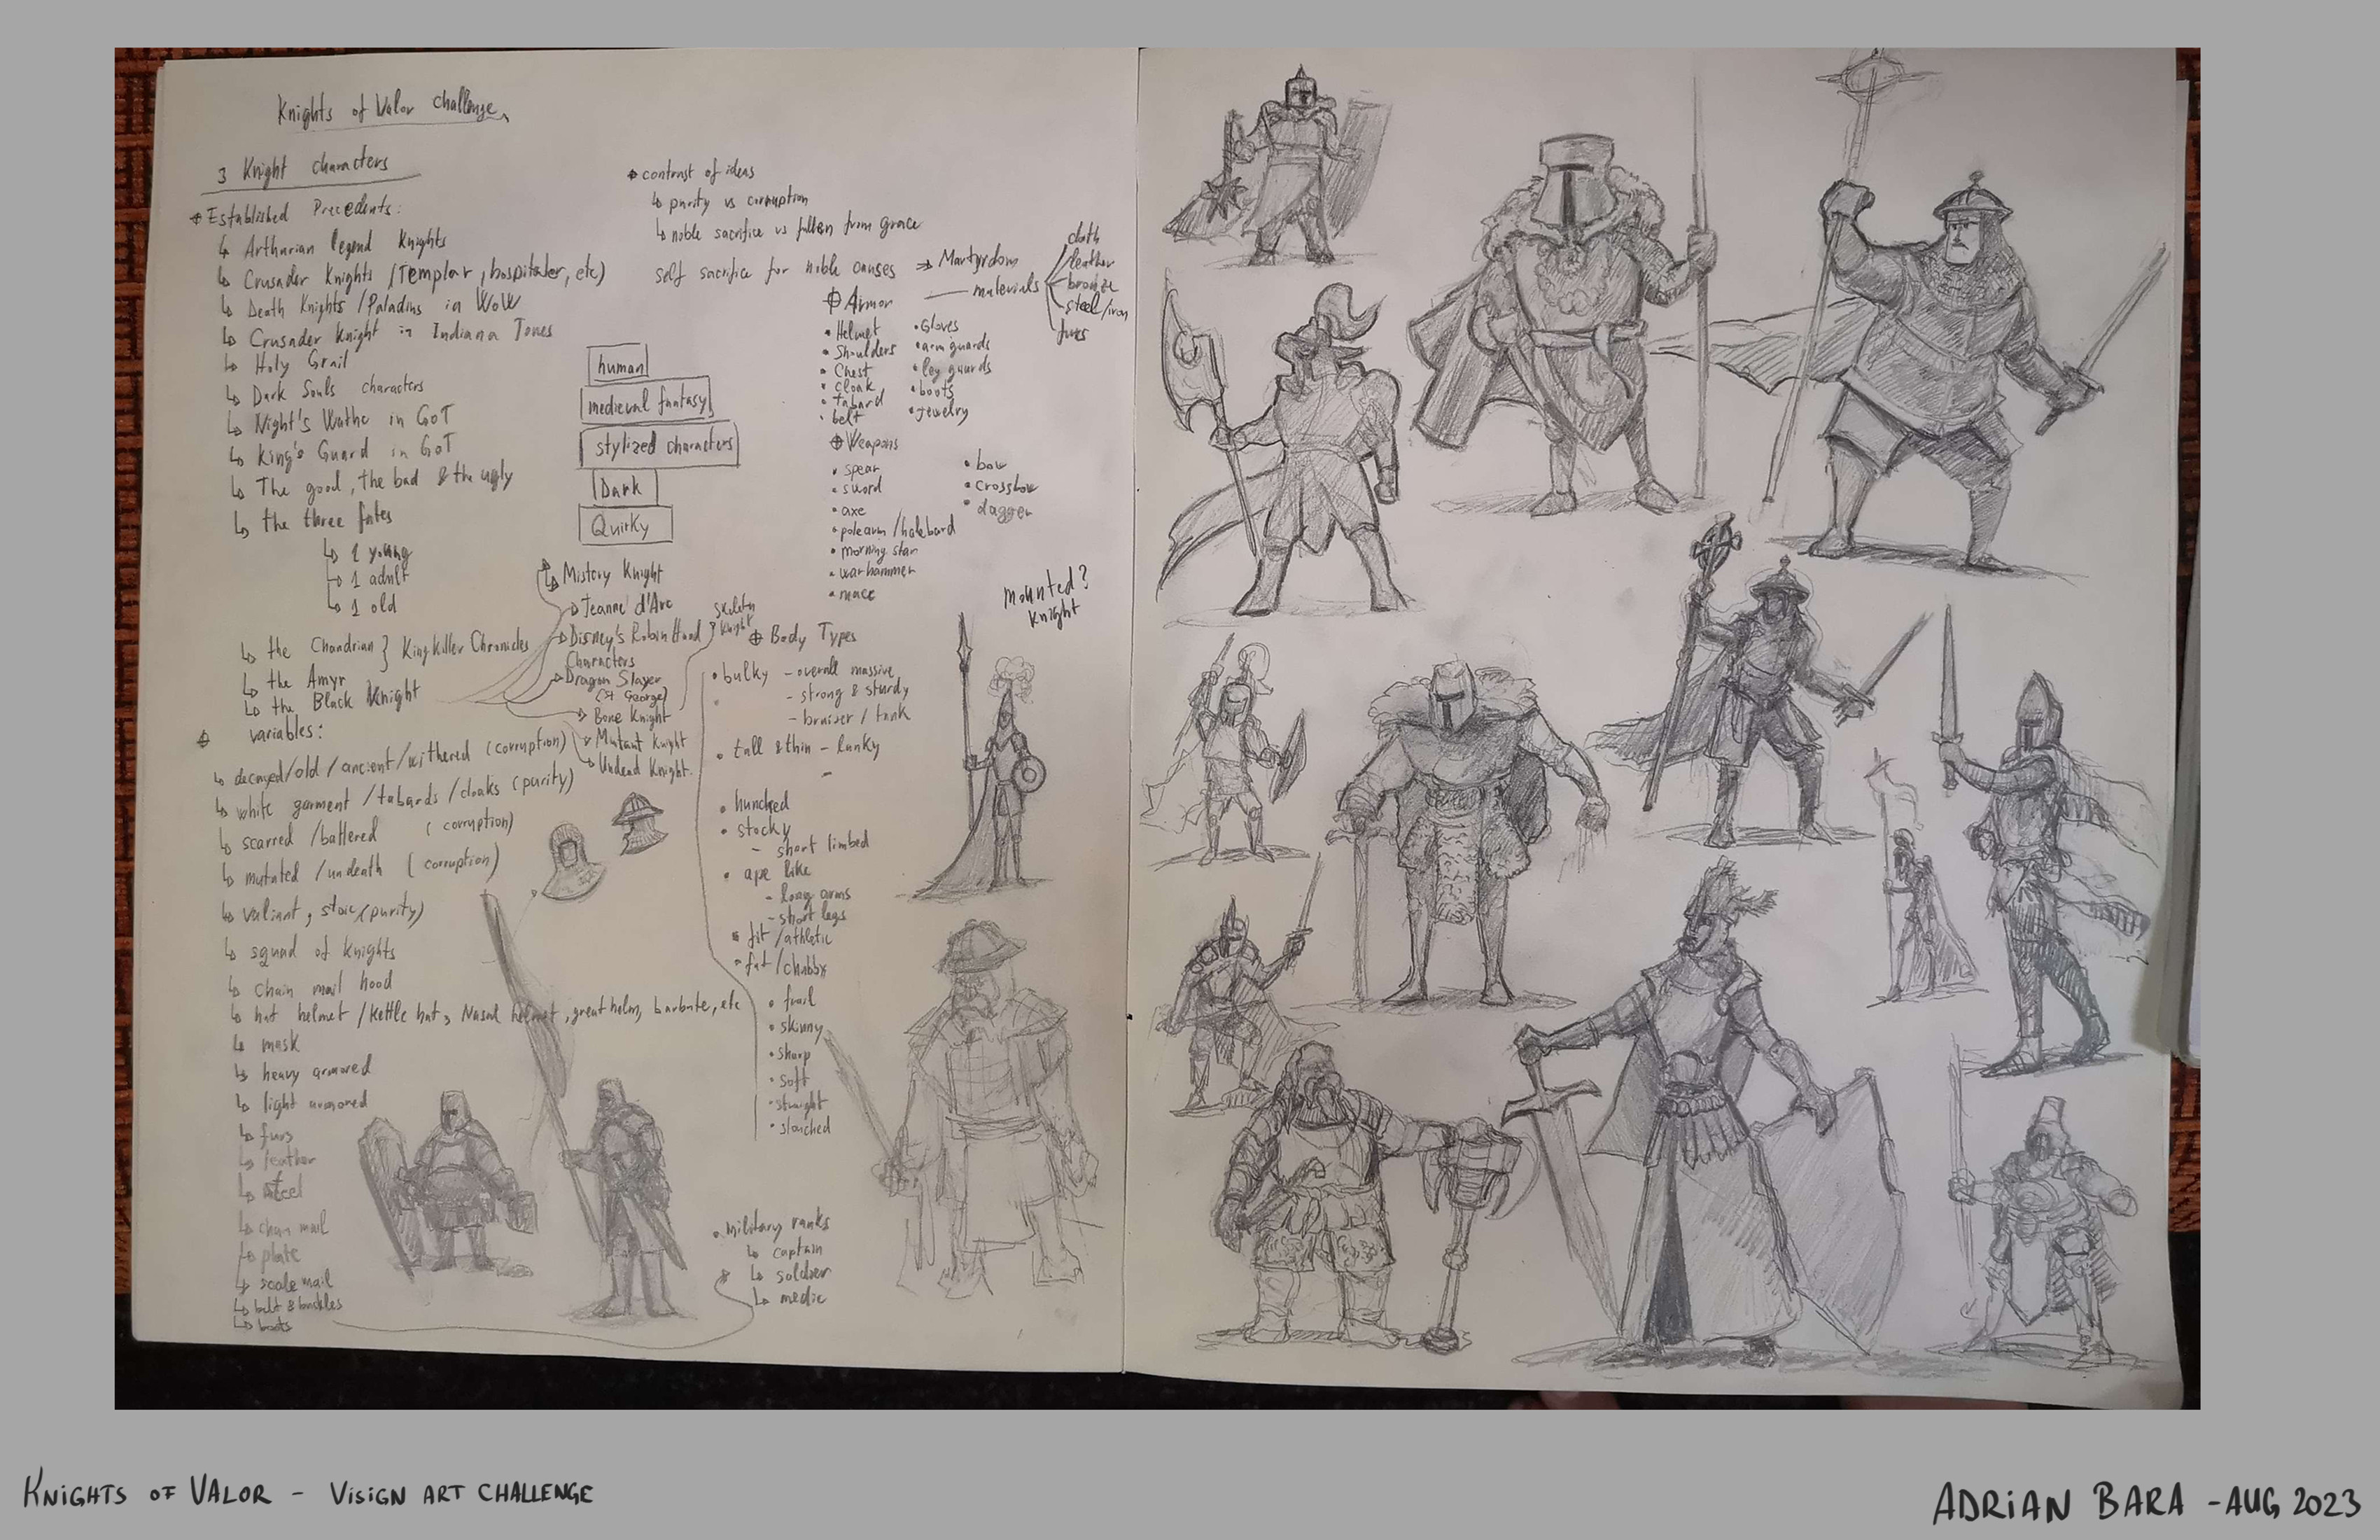 Knights of Valor Challenge
3 Knight characters
Established Precedents:
Arthurian legend Knights
Crusader Knights (Templar, hospitaler, etc)
Death Knights / Paladins in WoW
Crusader Knight in Indiana Jones
Holy Grail
Dark Souls characters
Night's Wathc in GoT
King's Guard in GoT
The good, the bad & the ugly
the three fates
1 young
1 adult
1 old
the Chandrian } KingKiller Chronicles
the Amyr
the Black Knight
variables:
decayed/old/ancient/withered (corruption)
white garment / tabards / cloaks (purity)
scarred / battered (corruption)
mutated / undeath (corruption)
valiant, stoic (purity)
squad of knights
chain mail hood
hat helmet / Kettle hat, Nasal helmet, great helm, barbute, etc
mask
heavy armored
light armored
furs
leather
steel
chain mail
plate
scale mail
belt & buckles
boots
contrast of ideas
purity vs corruption
noble sacrifice vs fallen from grace
self sacrifice for noble causes → Martyrdom
materials
cloth
leather
bronze
steel/iron
furs
human
medieval fantasy
stylized characters
Dark
Quirky
Mistery Knight
Jeanne d'Arc
Disney's Robin Hood } Skeleton Knight
Characters
Dragon Slayer
(St George)
Bone Knight
Mutant Knight
Undead Knight
Armor
• Helmet
• Shoulders
• Chest
• cloak
• tabard
• belt
• Gloves
• arm guards
• leg guards
• boots
• jewelry
Weapons
• spear
• sword
• axe
• polearm / halebard
• morning star
• warhammer
• mace
• bow
• crossbow
• dagger
mounted?
Knight
Body Types
• bulky - overall massive
- strong & sturdy
- bruiser / tank
• tall & thin - lanky
-
• hunched
• stocky
- short limbed
• ape like
- long arms
- short legs
• fit / athletic
• fat / chubby
• frail
• skinny
• sharp
• soft
• straight
• slouched
• military ranks
captain
soldier
medic
KNIGHTS OF VALOR - VISIGN ART CHALLENGE
ADRIAN BARA - AUG 2023